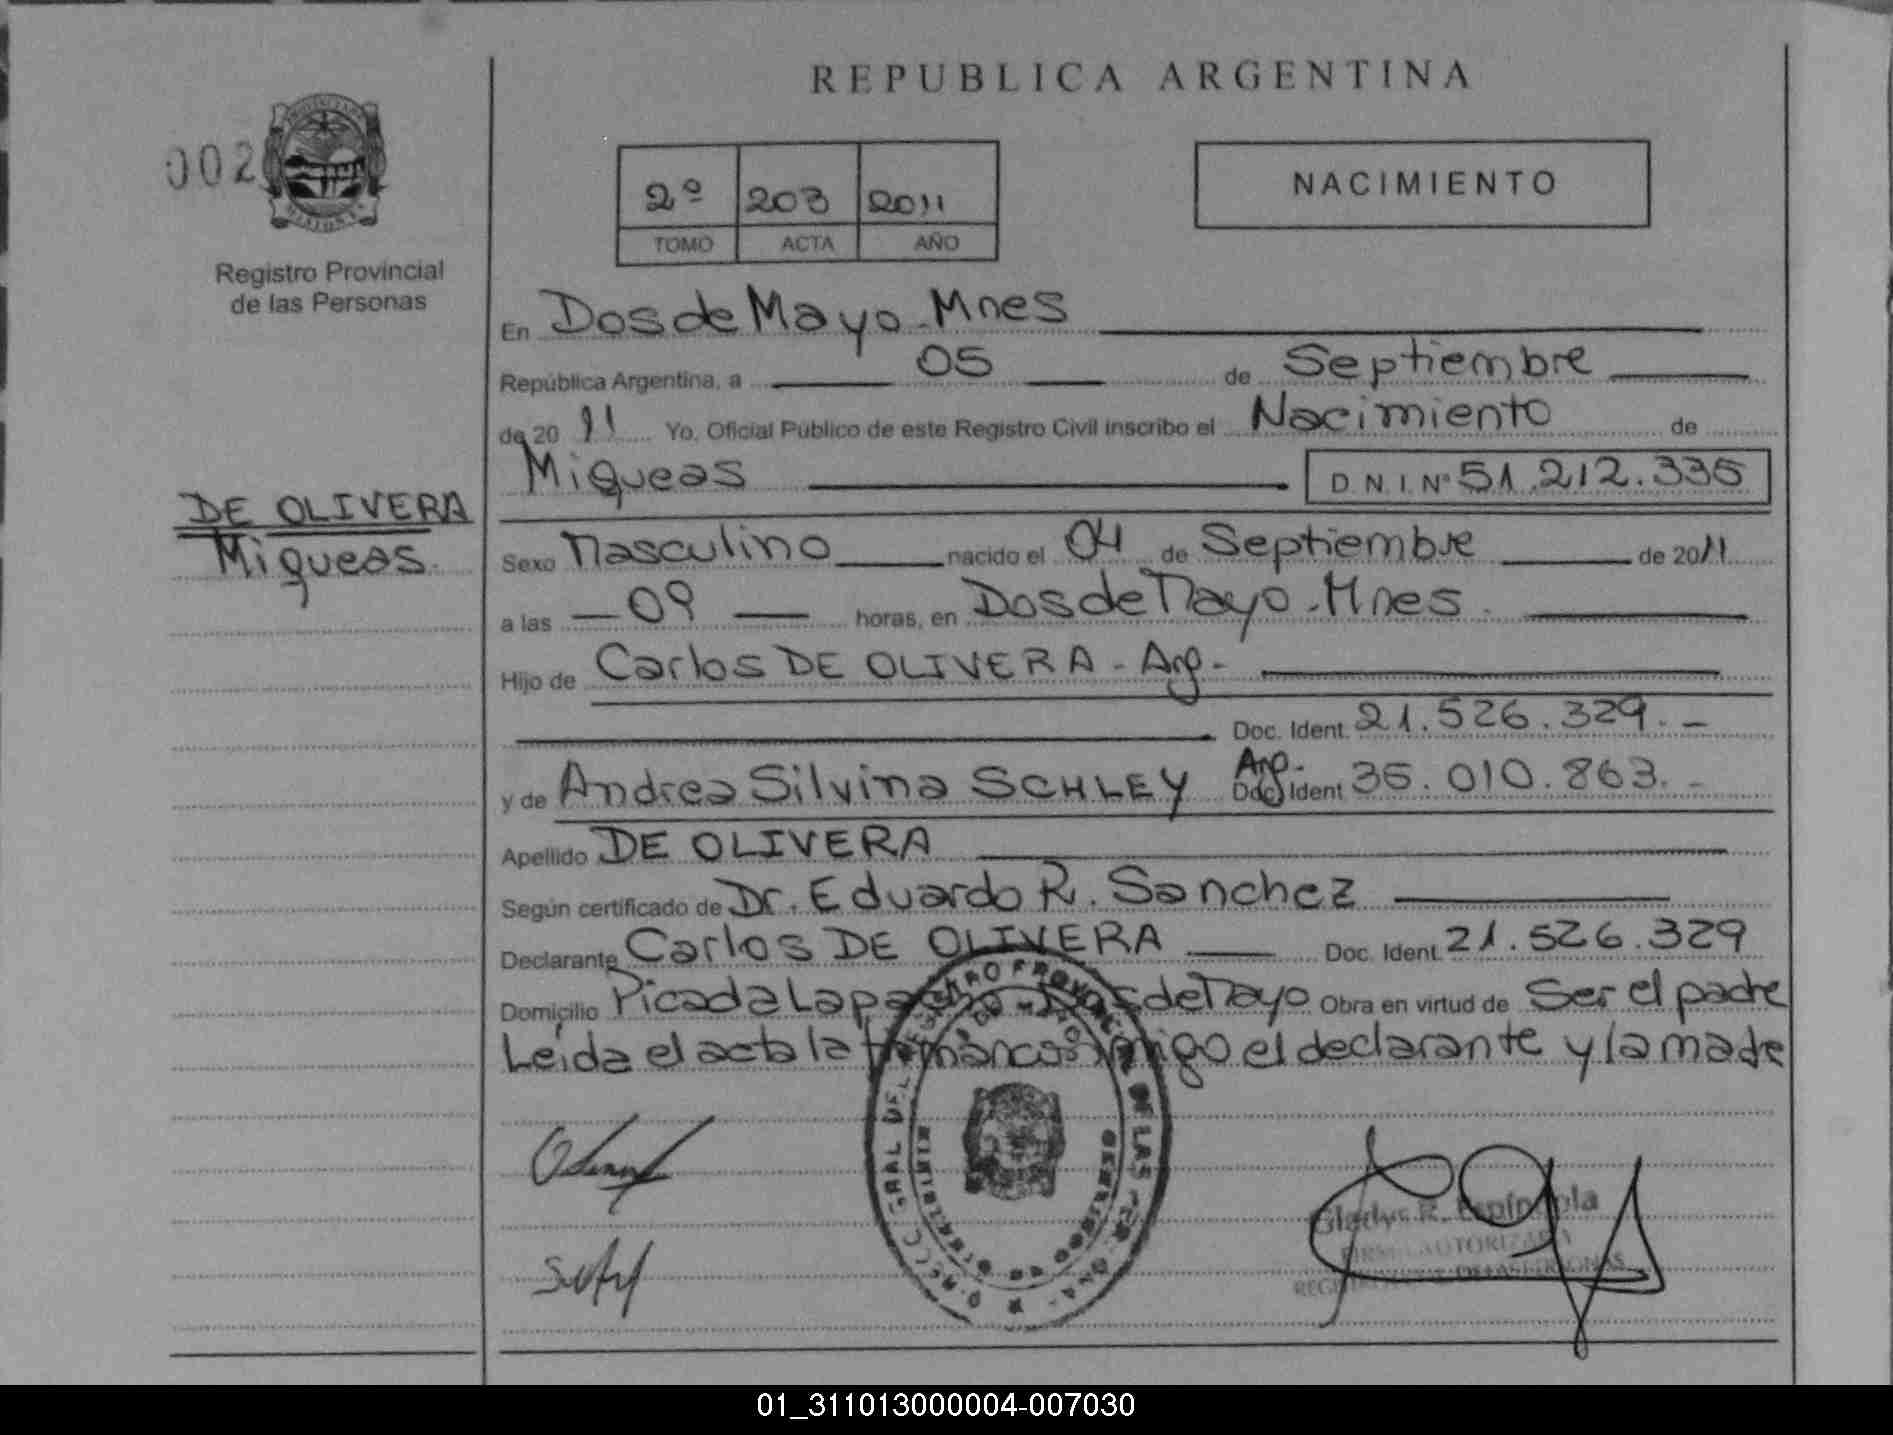 REPUBLICA ARGENTINA
002
2º 203 2011
TOMO ACTA AÑO
NACIMIENTO
Registro Provincial
de las Personas
DE OLIVERA
Miqueas.
En Dos de Mayo - Mnes
República Argentina, a 05 de Septiembre
de 2011 Yo, Oficial Público de este Registro Civil inscribo el Nacimiento de
Miqueas D N I Nº 51.212.335
Sexo Masculino nacido el 04 de Septiembre de 2011
a las 09 horas, en Dos de Mayo - Mnes.
Hijo de Carlos DE OLIVERA - Arg -
Doc. Ident. 21.526.329. -
y de Andrea Silvina SCHLEY Arg. - Doc. Ident 36.010.863. -
Apellido DE OLIVERA
Según certificado de Dr. Eduardo R. Sanchez
Declarante Carlos DE OLIVERA Doc. Ident. 21.526.329
Domicilio Picada Lapacho - Dos de Mayo Obra en virtud de Ser el padre
Leída el acta la firman conmigo el declarante y la madre
Gladys R. Espíndola
FIRMA AUTORIZADA
DE LAS PERSONAS
01_311013000004-007030